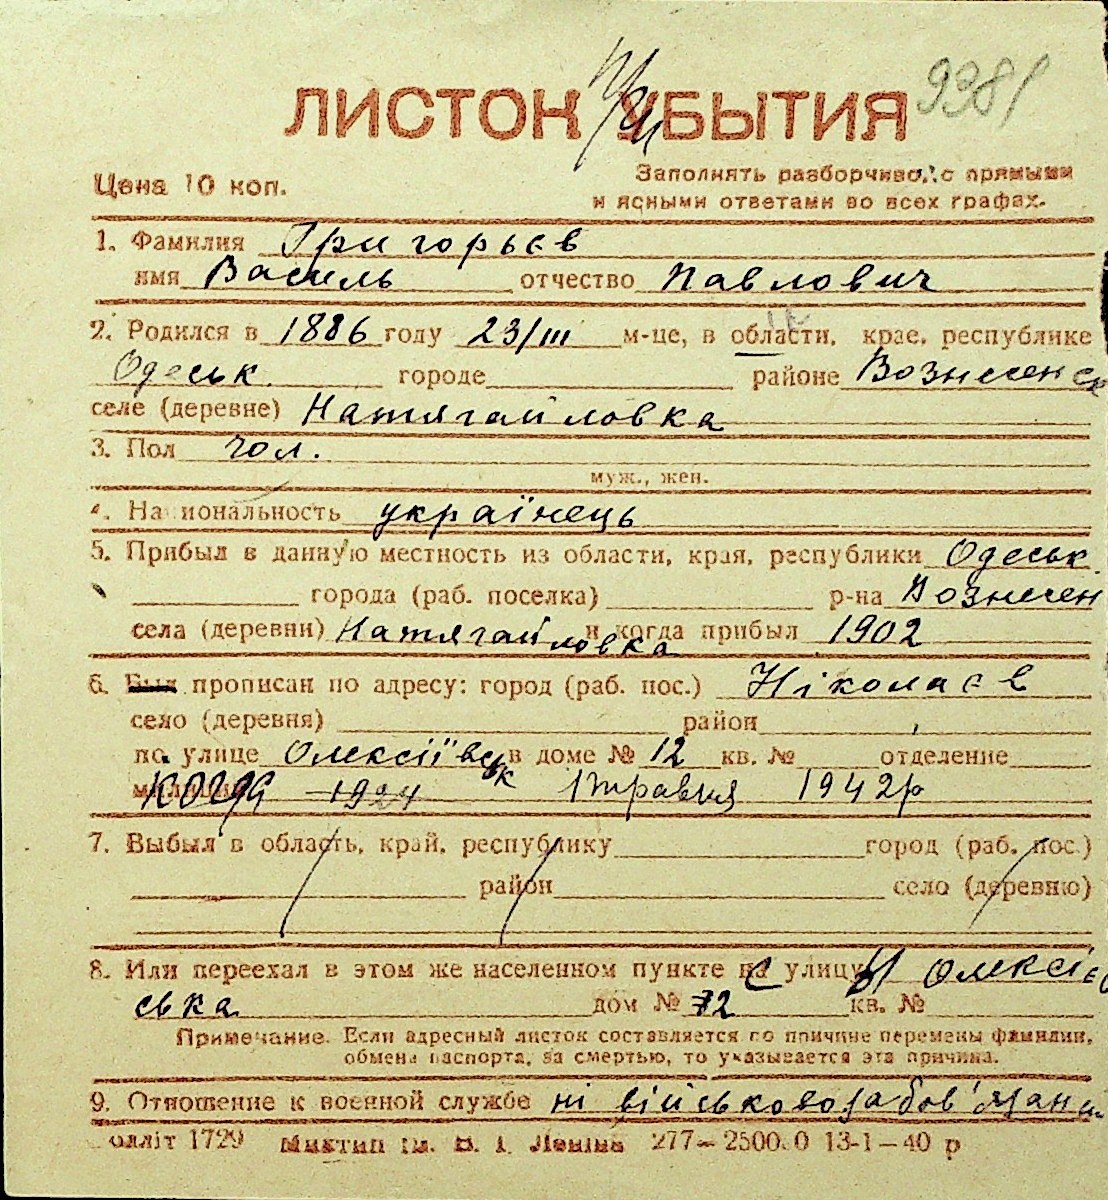 ЛИСТОК УБЫТИЯ 9381
Цена 10 коп.
Заполнять разборчиво, с прямыми
и ясными ответами во всех графах.
1. Фамилия Григорьєв
имя Василь отчество Павлович
2. Родился в 1886 году 23/III м-це, в области, крае, республике
Одеськ. городе районе Вознесенськ
селе (деревне) Натягайловка
3. Пол чол.
муж., жен.
4. На иональность українець
5. Прибыл в данную местность из области, края, республики Одеськ.
города (раб. поселка) р-на Вознесен
села (деревни) Натягайловка и когда прибыл 1902
6. Был прописан по адресу: город (раб. пос.) Ніколаєв
село (деревня) район
по улице Олексіївськ в доме № 12 кв. № отделение
милиции когда 1924 1 травня 1942р
7. Выбыл в область, край, республику город (раб. пос.)
район село (деревню)
8. Или переехал в этом же населенном пункте на улицу Олексіїв
ська дом № 72 кв. №
Примечание. Если адресный листок составляется по причине перемены фамилии,
обмена паспорта, за смертью, то указывается эта причина.
9. Отношение к военной службе ні військовозабов'язаний
олліт 1729 Миктип ім. В. І. Леніна 277—2500.0 13-1-40 р